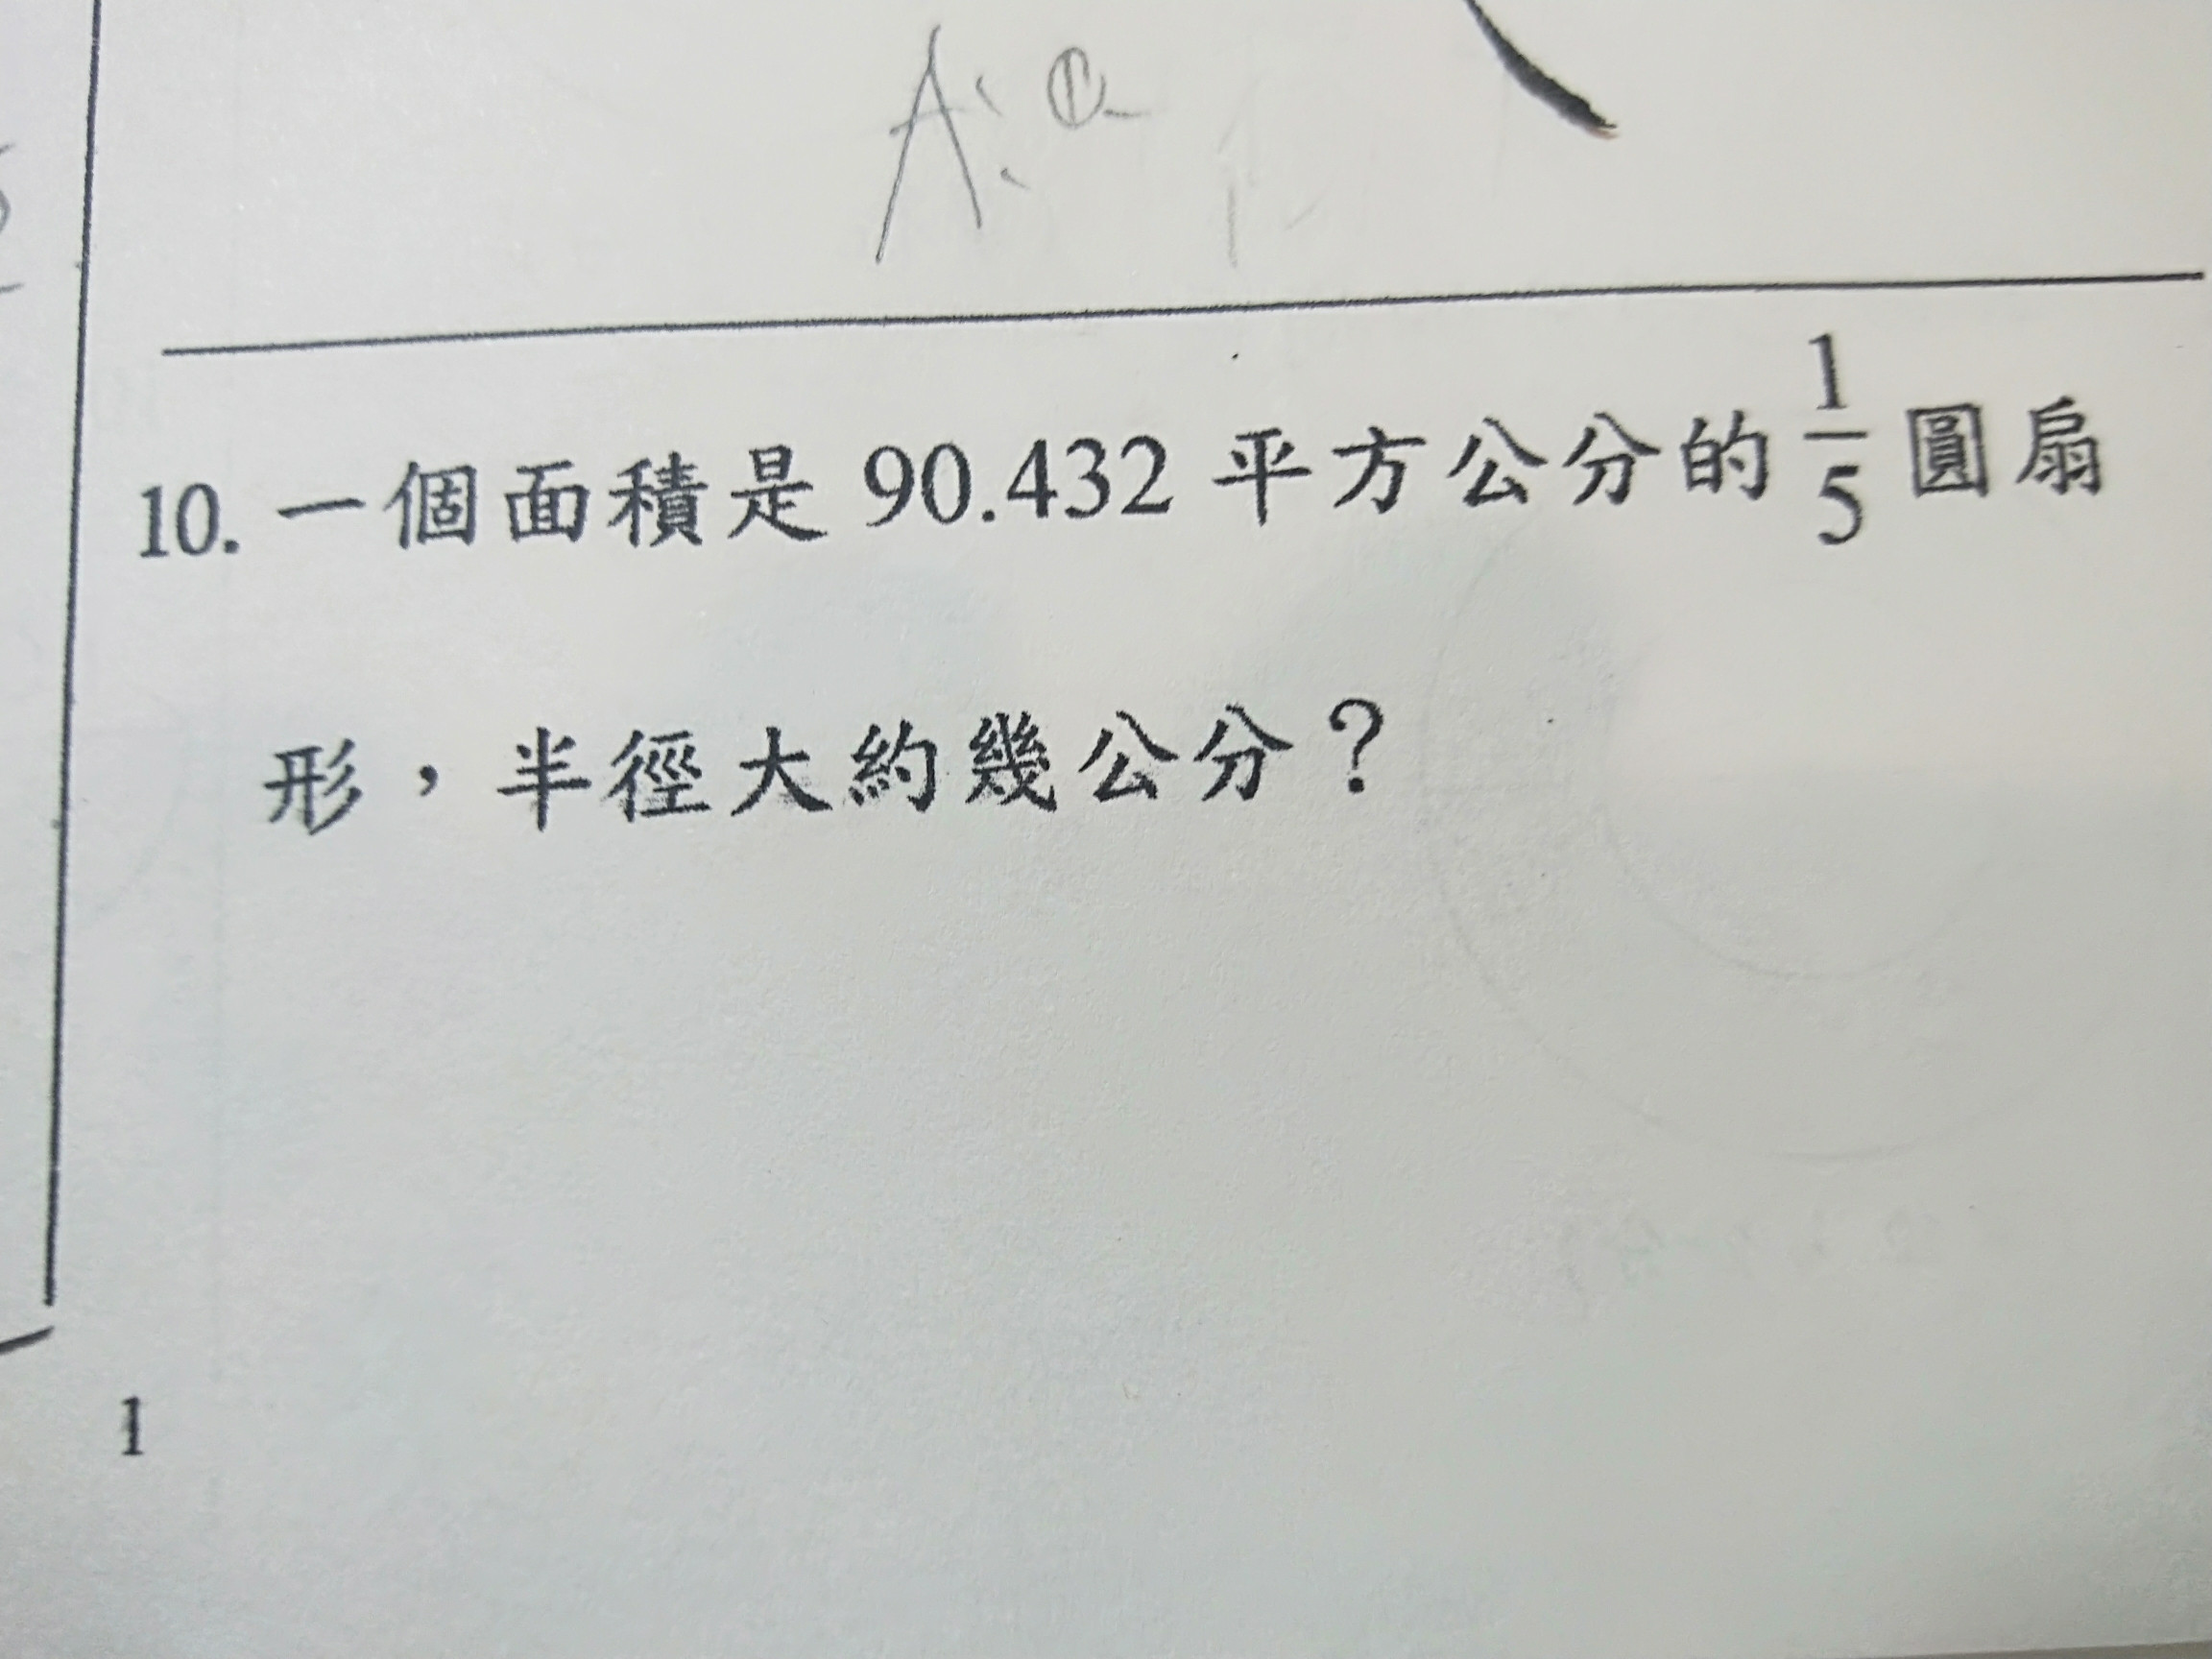 A:①
10. 一個面積是 90.432 平方公分的 1/5 圓扇
形，半徑大約幾公分？
1